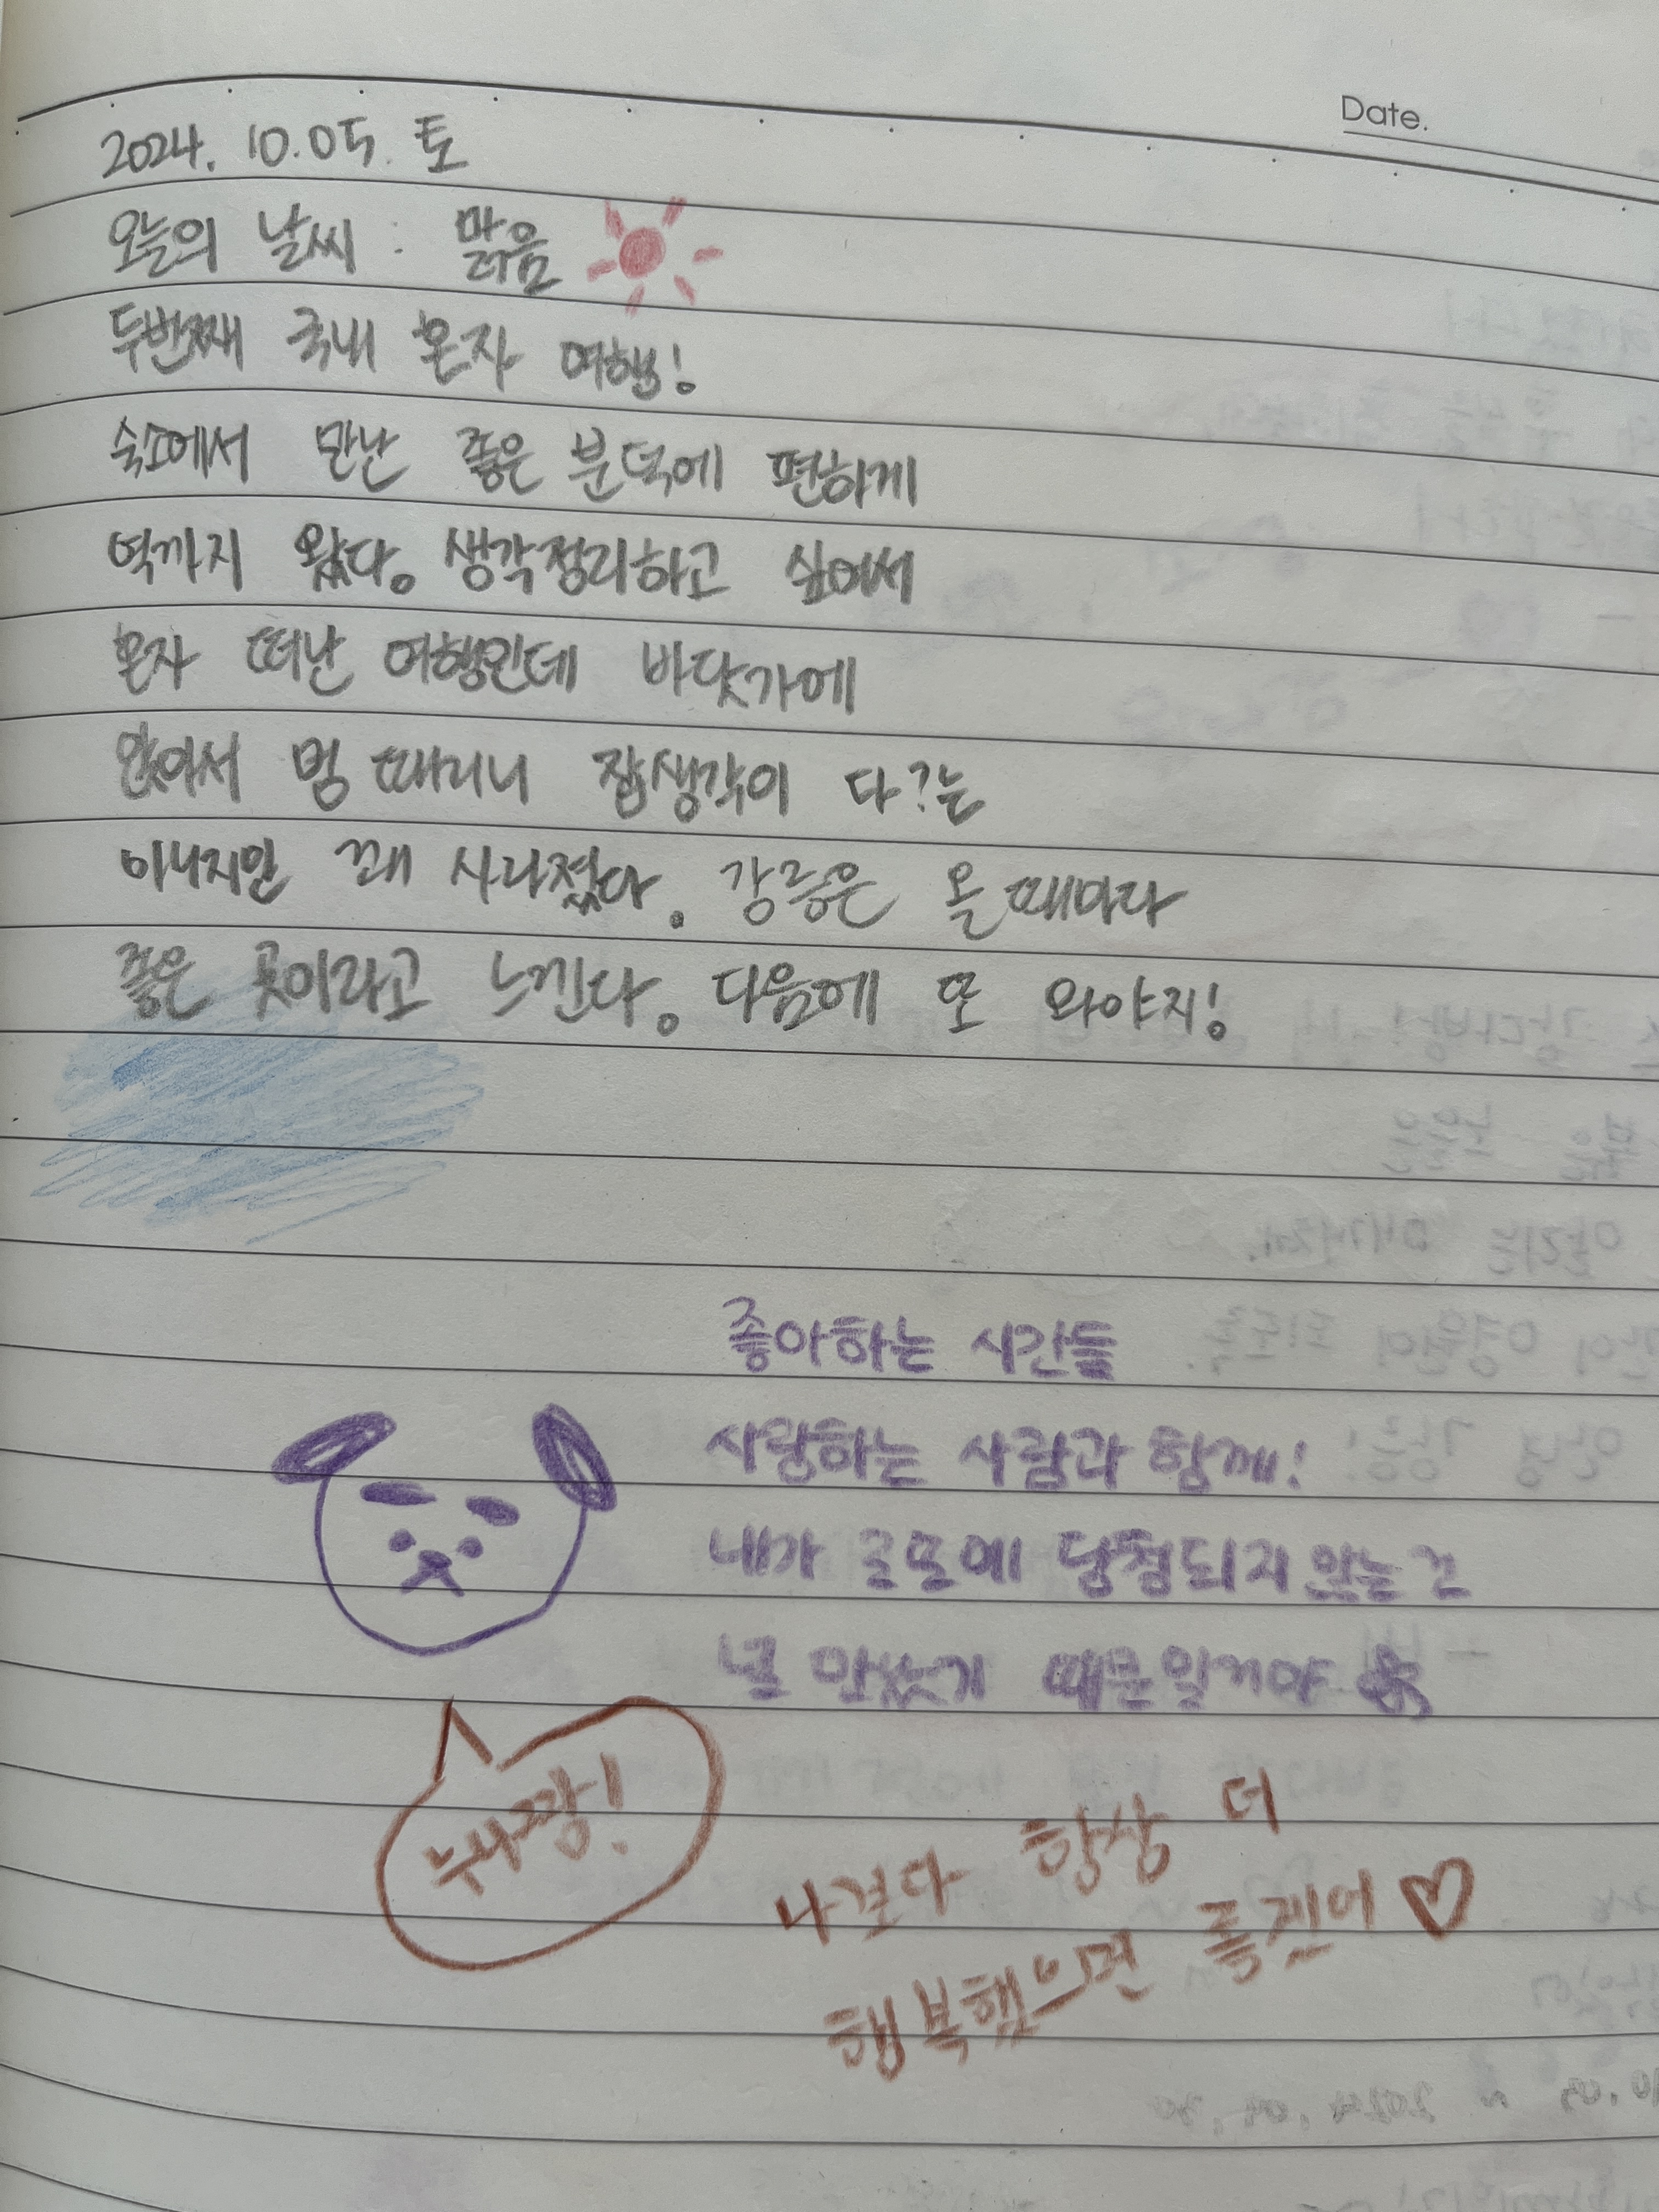 Date.
2024. 10. 05. 토
오늘의 날씨 : 맑음
두번째 국내 혼자 여행!
숙소에서 만난 좋은 분 덕에 편하게
역까지 왔다. 생각정리하고 싶어서
혼자 떠난 여행인데 바닷가에
앉아서 멍 때리니 잡생각이 다?는
아니지만 꽤 사라졌다. 강릉은 올 때마다
좋은 곳이라고 느낀다. 다음에 또 와야지!
좋아하는 시간들
사랑하는 사람과 함께!
내가 로또에 당첨되지 않는 건
널 만났기 때문일거야
누나짱!
나보다 항상 더
행복했으면 좋겠어 ♡